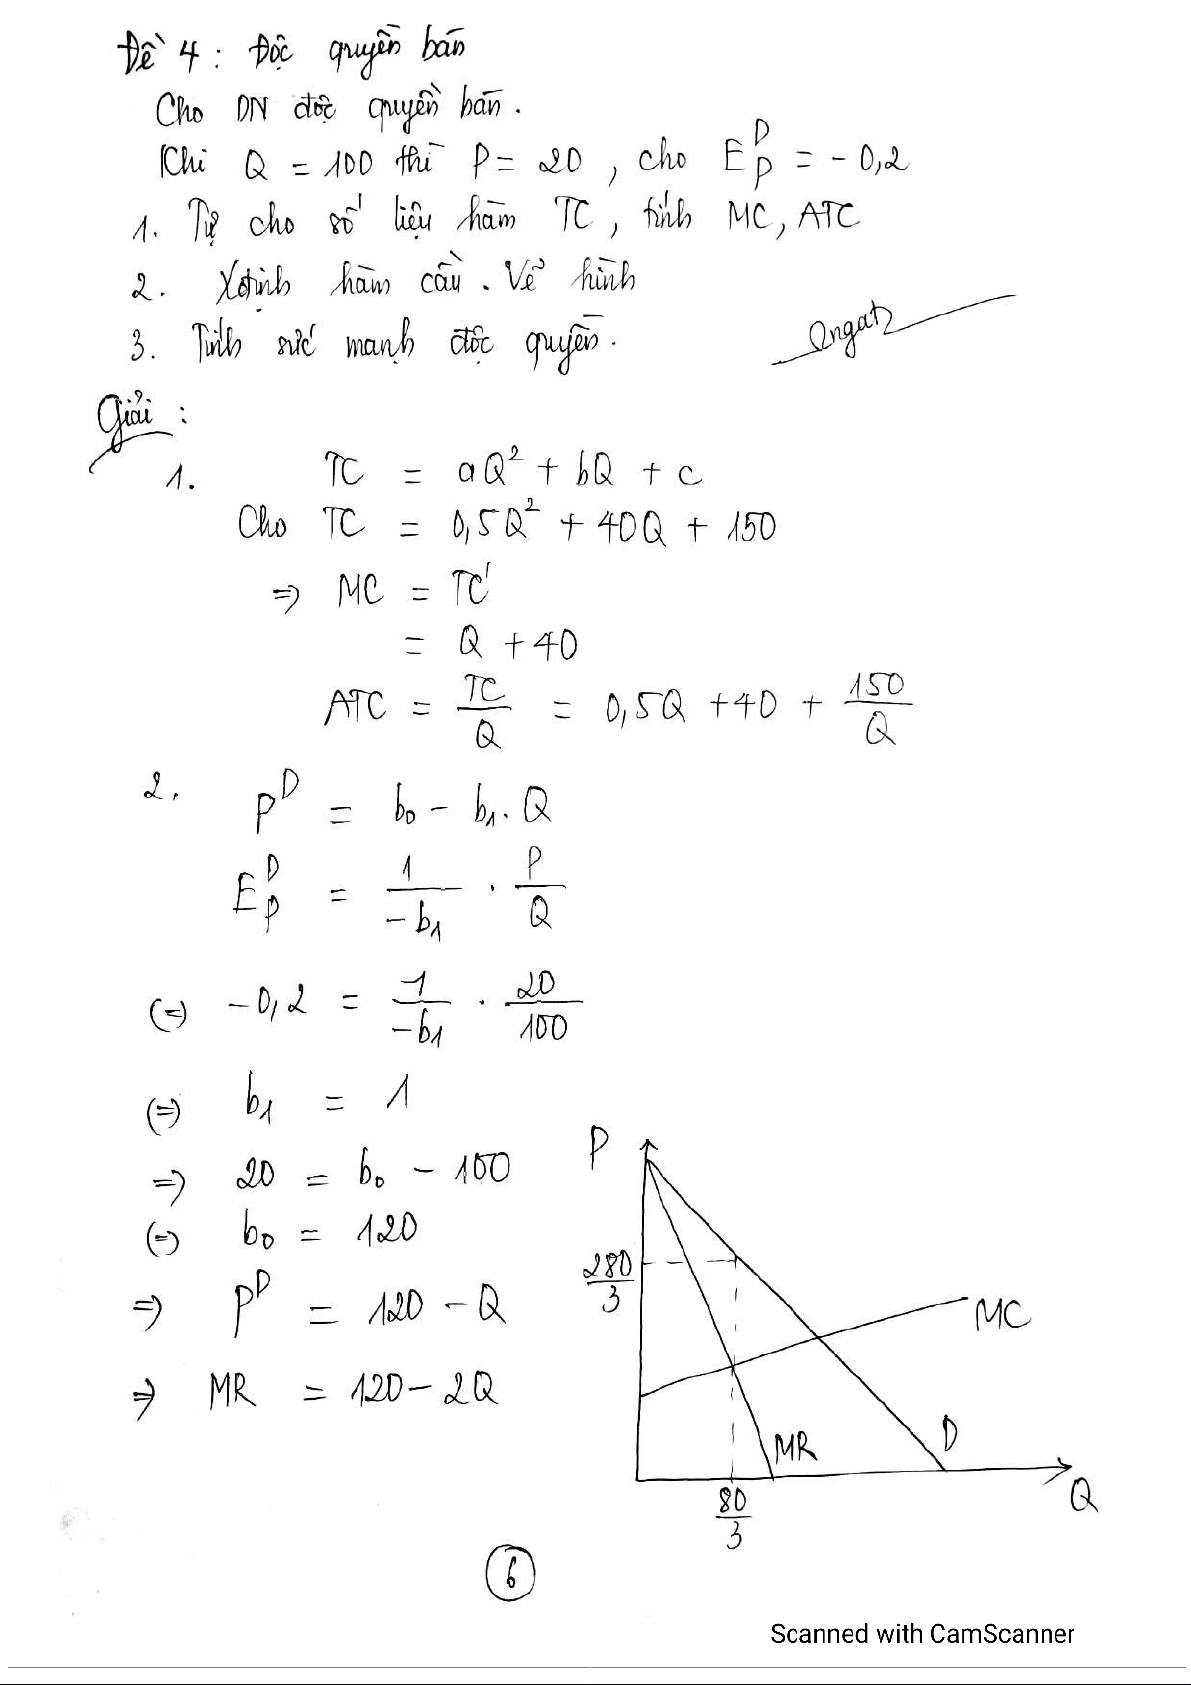 Đề 4 : Độc quyền bán
Cho DN độc quyền bán.
Khi Q = 100 thì P = 20, cho E_P^D = -0,2
1. Tự cho số liệu hàm TC, tính MC, ATC
2. Xđịnh hàm cầu. Vẽ hình
3. Tính sức mạnh độc quyền.
Giải :
1. TC = aQ² + bQ + c
Cho TC = 0,5Q² + 40Q + 150
=> MC = TC'
= Q + 40
ATC = TC/Q = 0,5Q + 40 + 150/Q
2. P^D = b₀ - b₁.Q
E_P^D = 1/-b₁ . P/Q
(=) -0,2 = 1/-b₁ . 20/100
(=) b₁ = 1
=> 20 = b₀ - 100
(=) b₀ = 120
=> P^D = 120 - Q
=> MR = 120 - 2Q
P
280/3
MC
D
MR
Q
80/3
6
Scanned with CamScanner